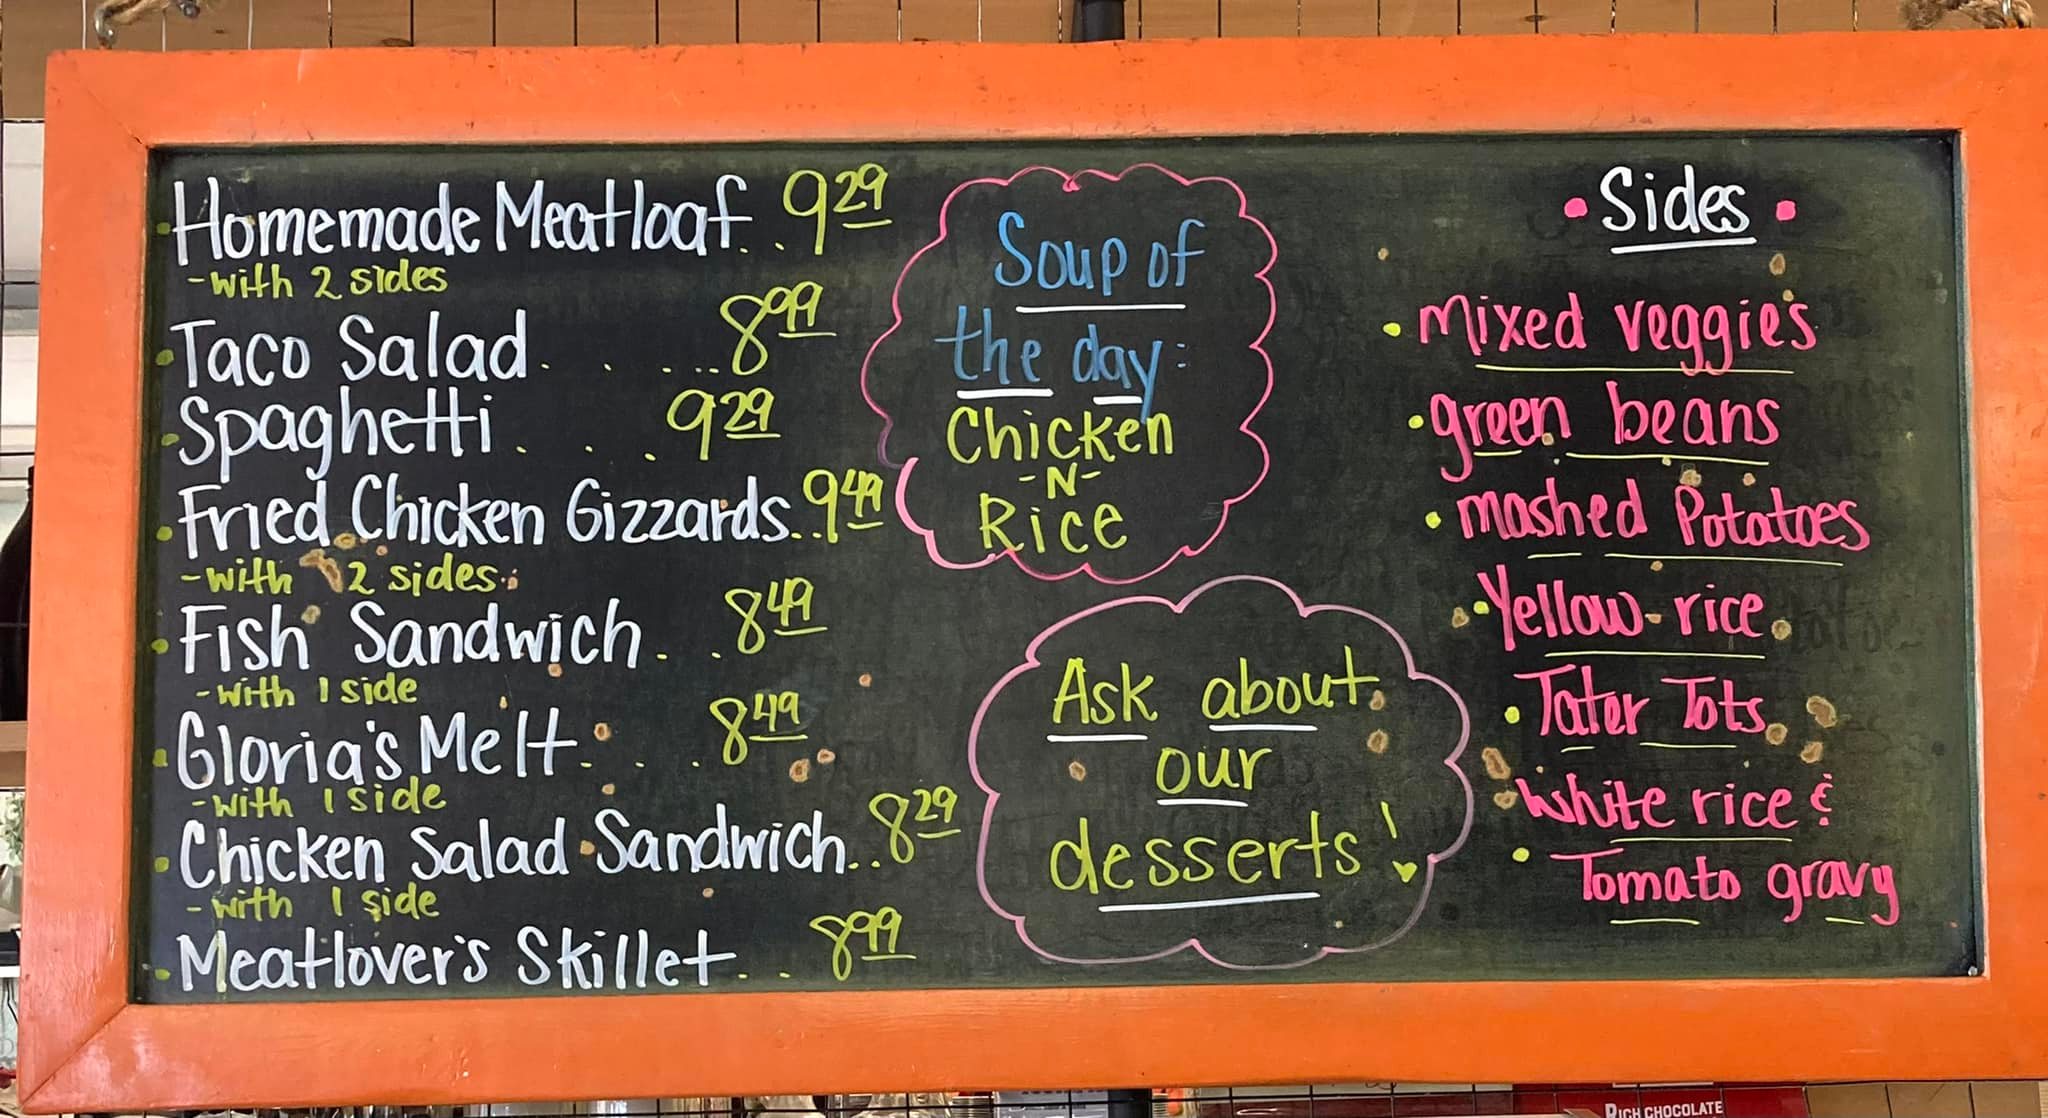 Homemade Meatloaf...9 29
-with 2 sides
Taco Salad......8 99
Spaghetti...9 29
Fried Chicken Gizzards..9 49
-with 2 sides
Fish Sandwich...8 49
-with 1 side
Gloria's Melt....8 49
-with 1 side
Chicken Salad Sandwich..8 29
-with 1 side
Meatlover's Skillet...8 99
Soup of
the day:
Chicken
-N-
Rice
Ask about
our
desserts!
• Sides •
• mixed veggies
• green beans
• mashed Potatoes
• Yellow-rice
• Tater Tots
• white rice &
Tomato gravy
RICH CHOCOLATE